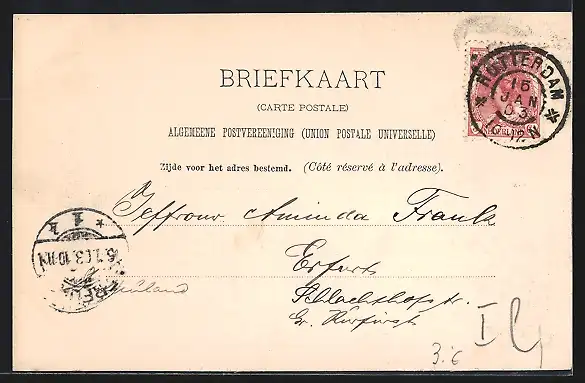 BRIEFKAART
(CARTE POSTALE)
ALGEMEENE POSTVEREENIGING (UNION POSTALE UNIVERSELLE)
Zijde voor het adres bestemd. (Côté réservé à l'adresse).
ROTTERDAM
16
JAN
03
NEDERLAND
Jeffrouw Aminda Frank
Erfurt
Schlachthofstr.
Gr. Kurfürst
* 1 k
3.6